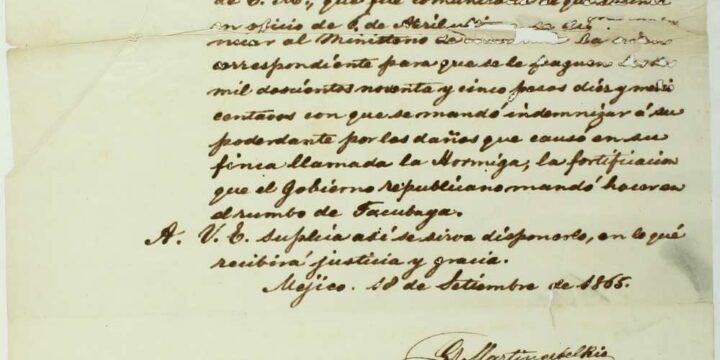 de S. M., que fué comunicada
en oficio de 6 de Abril
nciar al Ministerio de la orden
correspondiente para que se le paguen
mil doscientos noventa y cinco pesos diez y medio
centavos con que se mandó indemnizar á su
poderdante por los daños que causó en su
finca llamada la Hormiga, la fortificacion
que el Gobierno republicano mandó hacer en
el rumbo de Tacubaya.
A. V. E. suplica así se sirva disponerlo, en lo qué
recibirá justicia y gracia.
Méjico. 18 de Setiembre de 1865.
Martinez del Rio